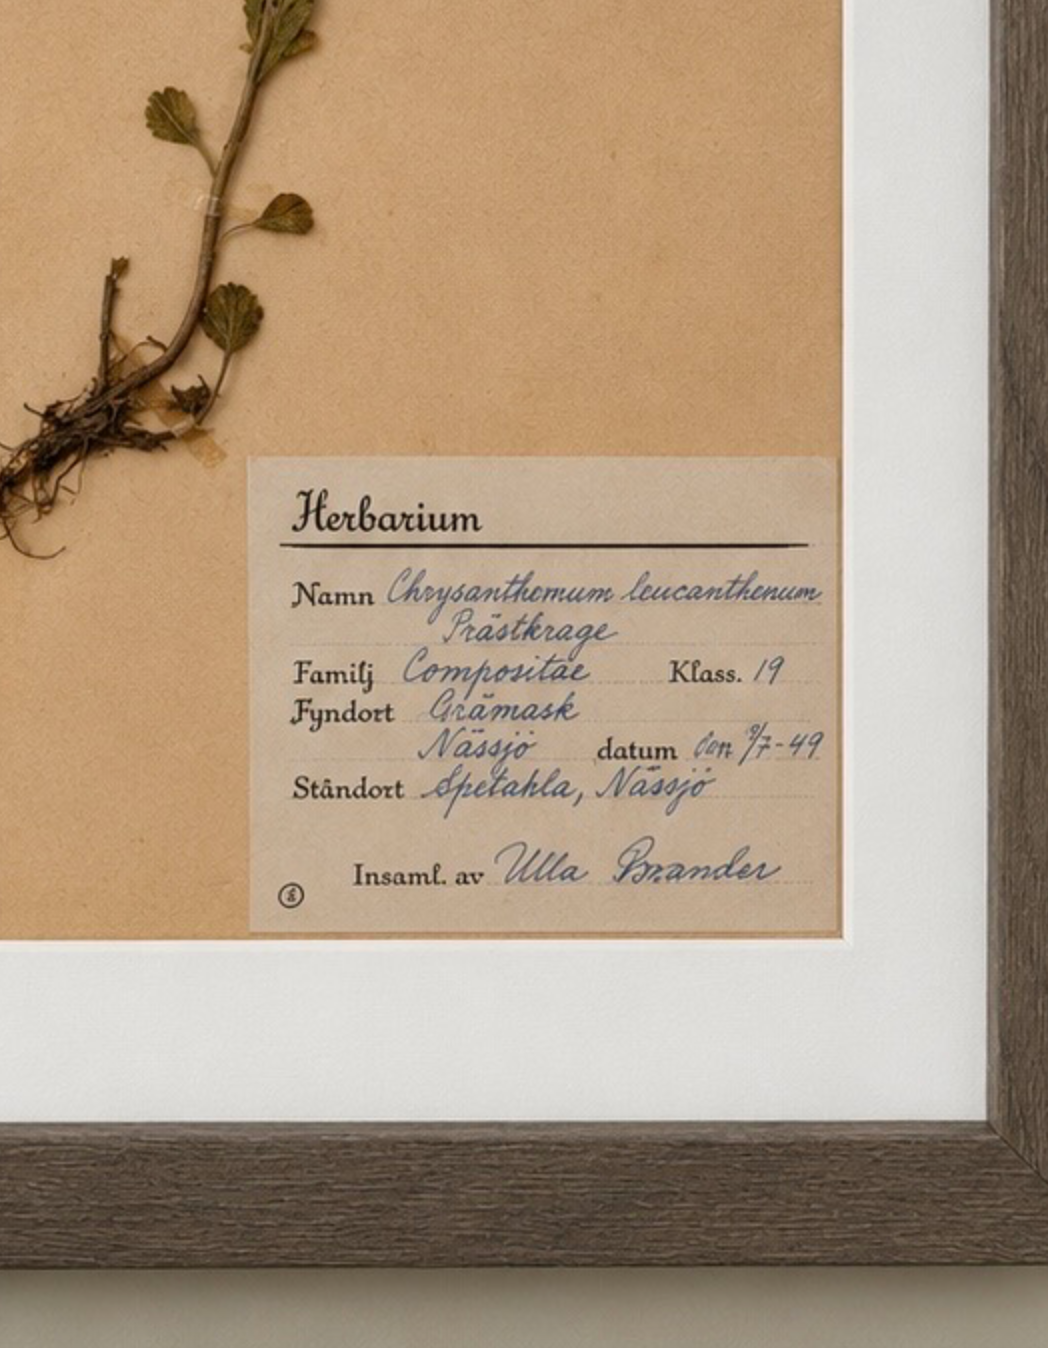 Herbarium
Namn Chrysanthemum leucanthenum
Prästkrage
Familj Compositae Klass. 19
Fyndort Grämask
Nässjö datum den 9/7-49
Ståndort Spetahla, Nässjö
Insaml. av Ulla Brander